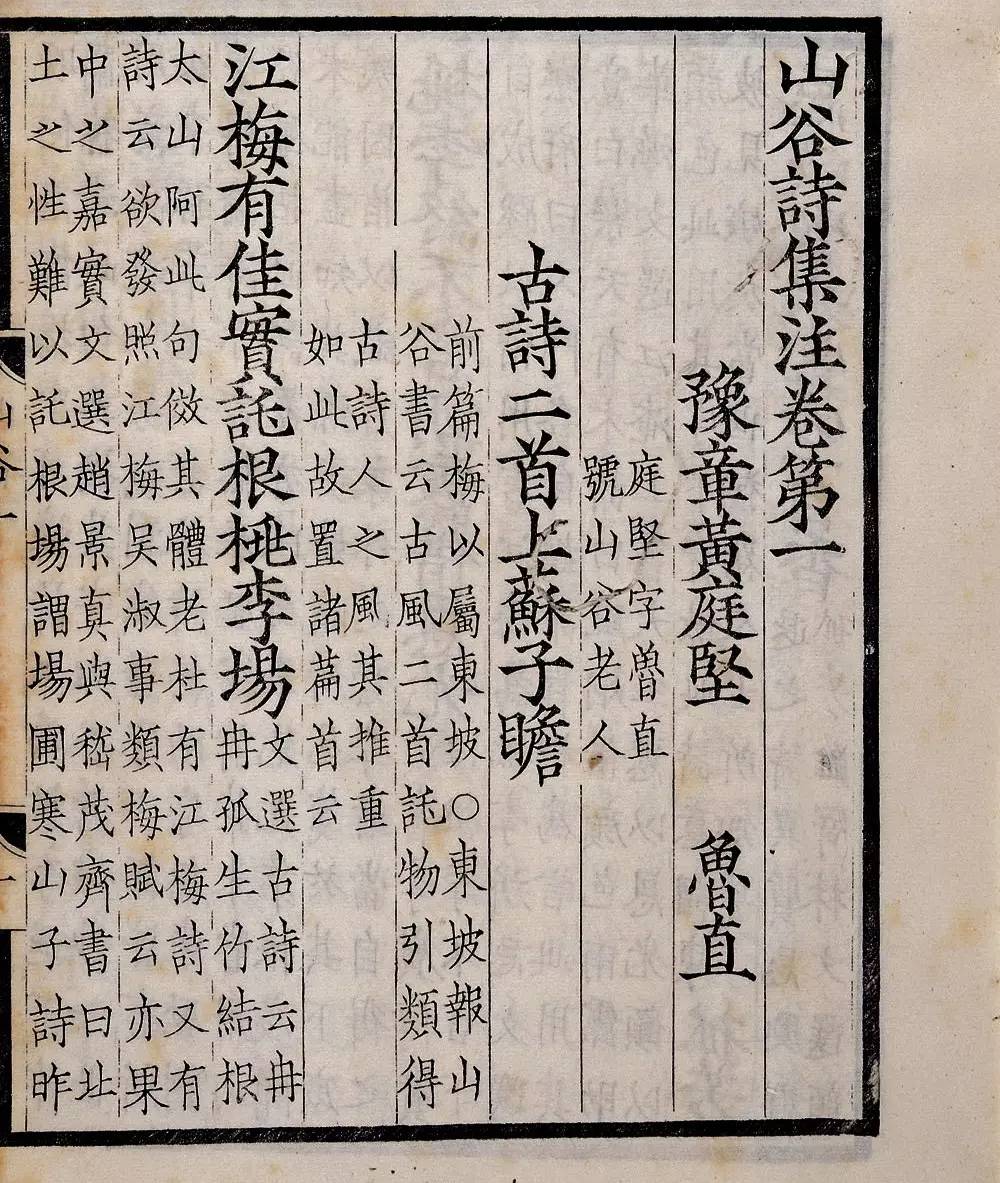 山谷詩集注卷第一
豫章黃庭堅 魯直
庭堅字魯直
號山谷老人
古詩二首上蘇子瞻
前篇梅以屬東坡○東坡報山
谷書云古風二首託物引類得
古詩人之風其推重
如此故置諸篇首云
江梅有佳實託根桃李場
文選古詩云冉
冉孤生竹結根
太山阿此句傚其體老杜有江梅詩又有
詩云欲發照江梅吳淑事類梅賦云亦果
中之嘉實文選趙景真與嵇茂齊書曰北
土之性難以託根場謂場圃寒山子詩昨